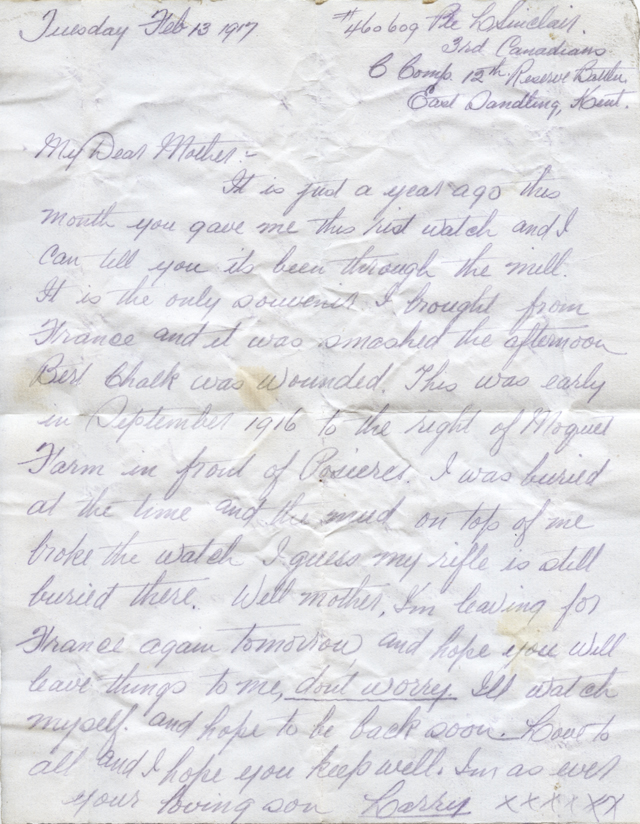 Tuesday Feb 13 1917
#460609 Pte L Sinclair.
3rd Canadians.
C Comp. 12th Reserve Battn.
East Sandling, Kent.
My Dear Mother:-
It is just a year ago this
month you gave me this rist watch and I
can tell you its been through the mill.
It is the only souvenir I brought from
France and it was smashed the afternoon
Bert Chalk was wounded. This was early
in September 1916 to the right of Moquet
Farm in front of Posieres. I was buried
at the time and the mud on top of me
broke the watch I guess my rifle is still
buried there. Well mother, I'm leaving for
France again tomorrow, and hope you will
leave things to me, dont worry. Ill watch
myself. and hope to be back soon. Love to
all and I hope you keep well. I'm as ever
your loving son Larry xxxxxx